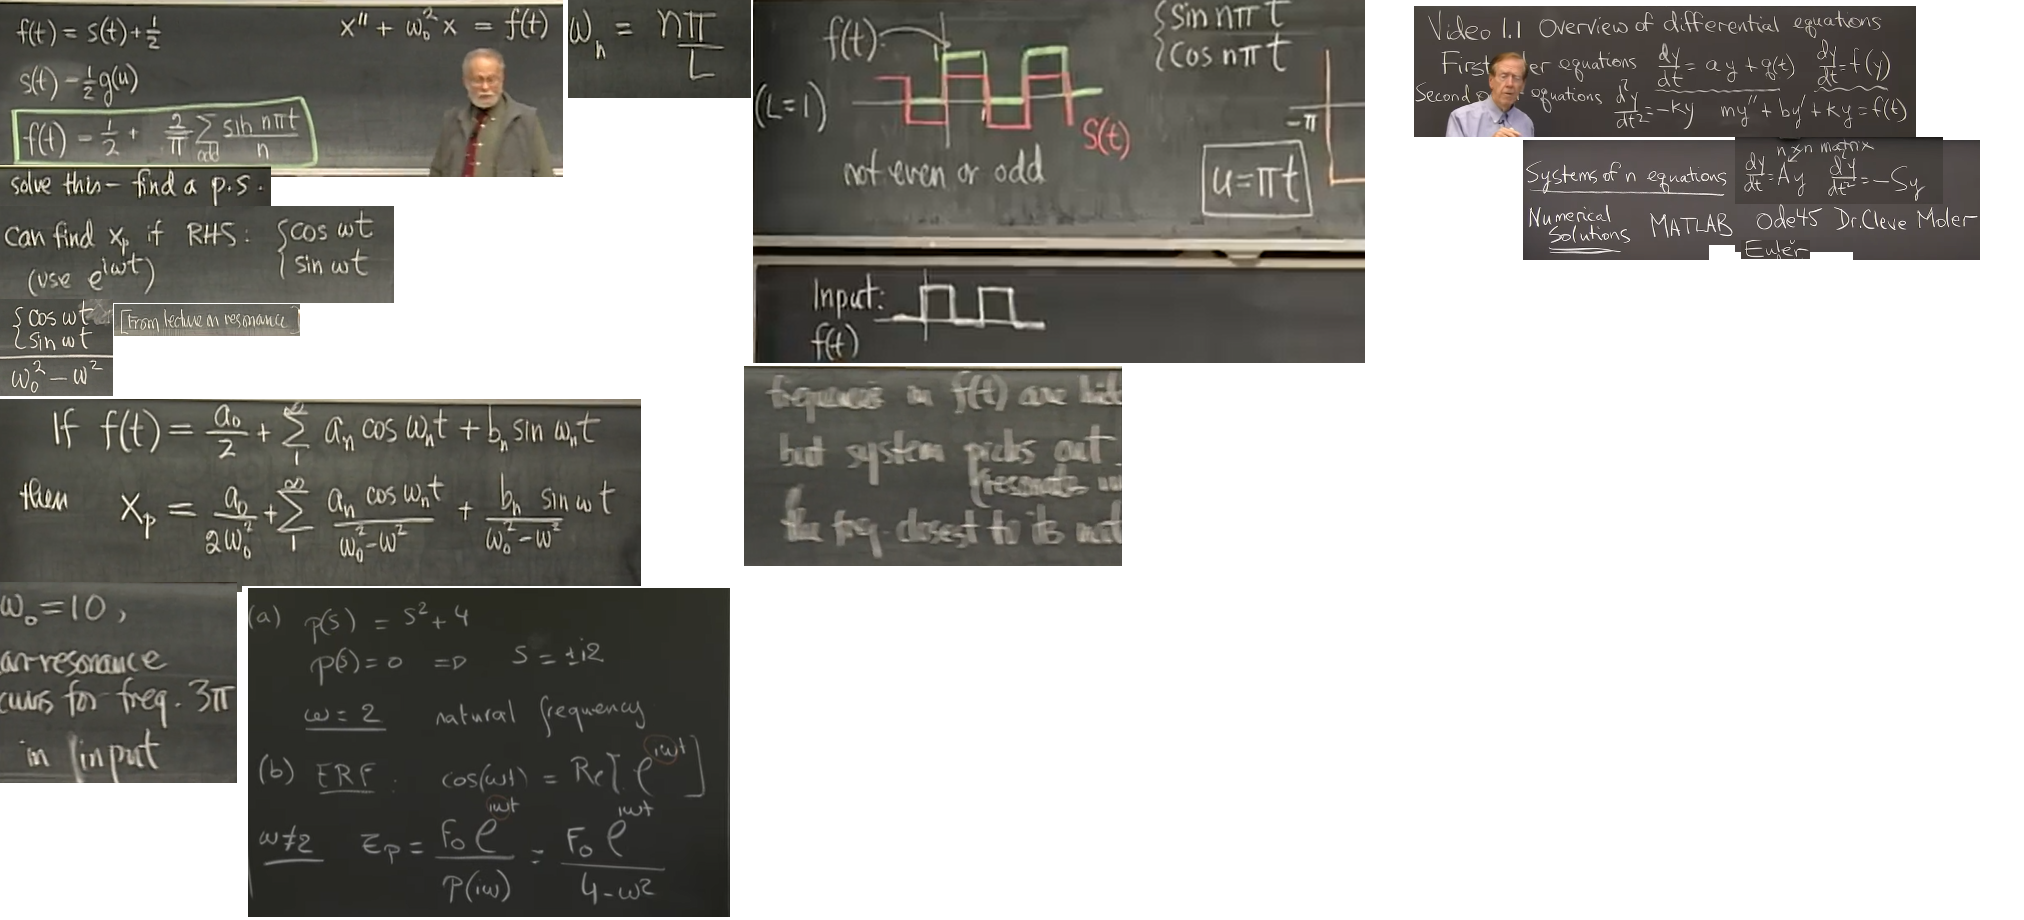 f(t) = s(t) + 1/2
x'' + ω₀² x = f(t)
s(t) - 1/2 g(u)
f(t) - 1/2 + 2/π ∑ sin nπt / n
odd
solve this - find a p.s.
can find xₚ if RHS: { cos ωt
(use e^{iωt}) { sin ωt
{ cos ωt
{ sin ωt
ω₀² - ω²
[From lecture on resonance]
If f(t) = a₀/2 + ∑₁^∞ aₙ cos ωₙt + bₙ sin ωₙt
then xₚ = a₀/2ω₀² + ∑₁^∞ aₙ cos ωₙt / ω₀² - ω² + bₙ sin ω t / ω₀² - ω²
ω₀ = 10,
ar-resonance
curs for freq. 3π
in input
(a) p(s) = s² + 4
p(s) = 0 => s = ±i2
ω = 2 natural frequency
(b) ERF : cos(ωt) = Re[ e^{iωt} ]
ω≠2 zₚ = F₀ e^{iωt} / P(iω) = F₀ e^{iωt} / 4 - ω²
ωₙ = nπ / L
f(t)
{ sin nπ t
{ cos nπ t
(L=1)
S(t)
-π
not even or odd
u = πt
Input:
f(t)
in f(t) are
but system picks out
the freq. closest to its
Video 1.1 Overview of differential equations
First er equations dy/dt = ay + q(t) dy/dt = f(y)
Second o equations d²y/dt² = -ky my'' + by' + ky = f(t)
n×n matrix
Systems of n equations dy/dt = Ay d²y/dt² = -Sy
Numerical
Solutions MATLAB Ode45 Dr. Cleve Moler
Euler